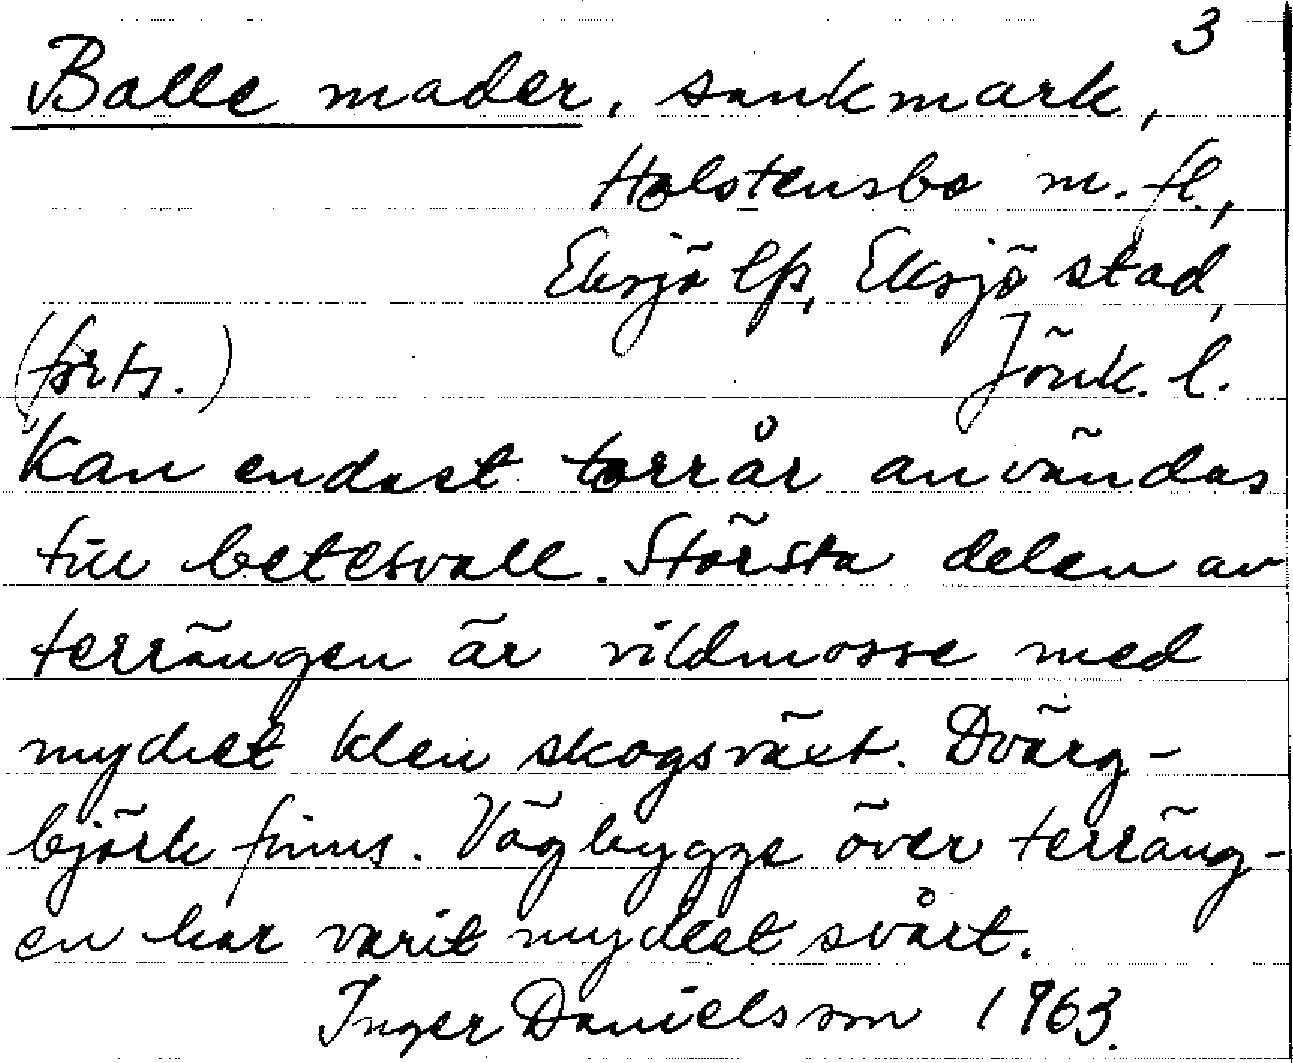 3
Balle mader, sankmark,
Holstensbo m. fl.,
Eksjö lfs, Eksjö stad,
(forts.) Jönk. l.
Kan endast torrår användas
till betesvall. Största delen av
terrängen är vildmosse med
mycket klen skogsväxt. Dvärg-
björk finns. Vägbygge över terräng-
en har varit mycket svårt.
Inger Danielsson 1963.